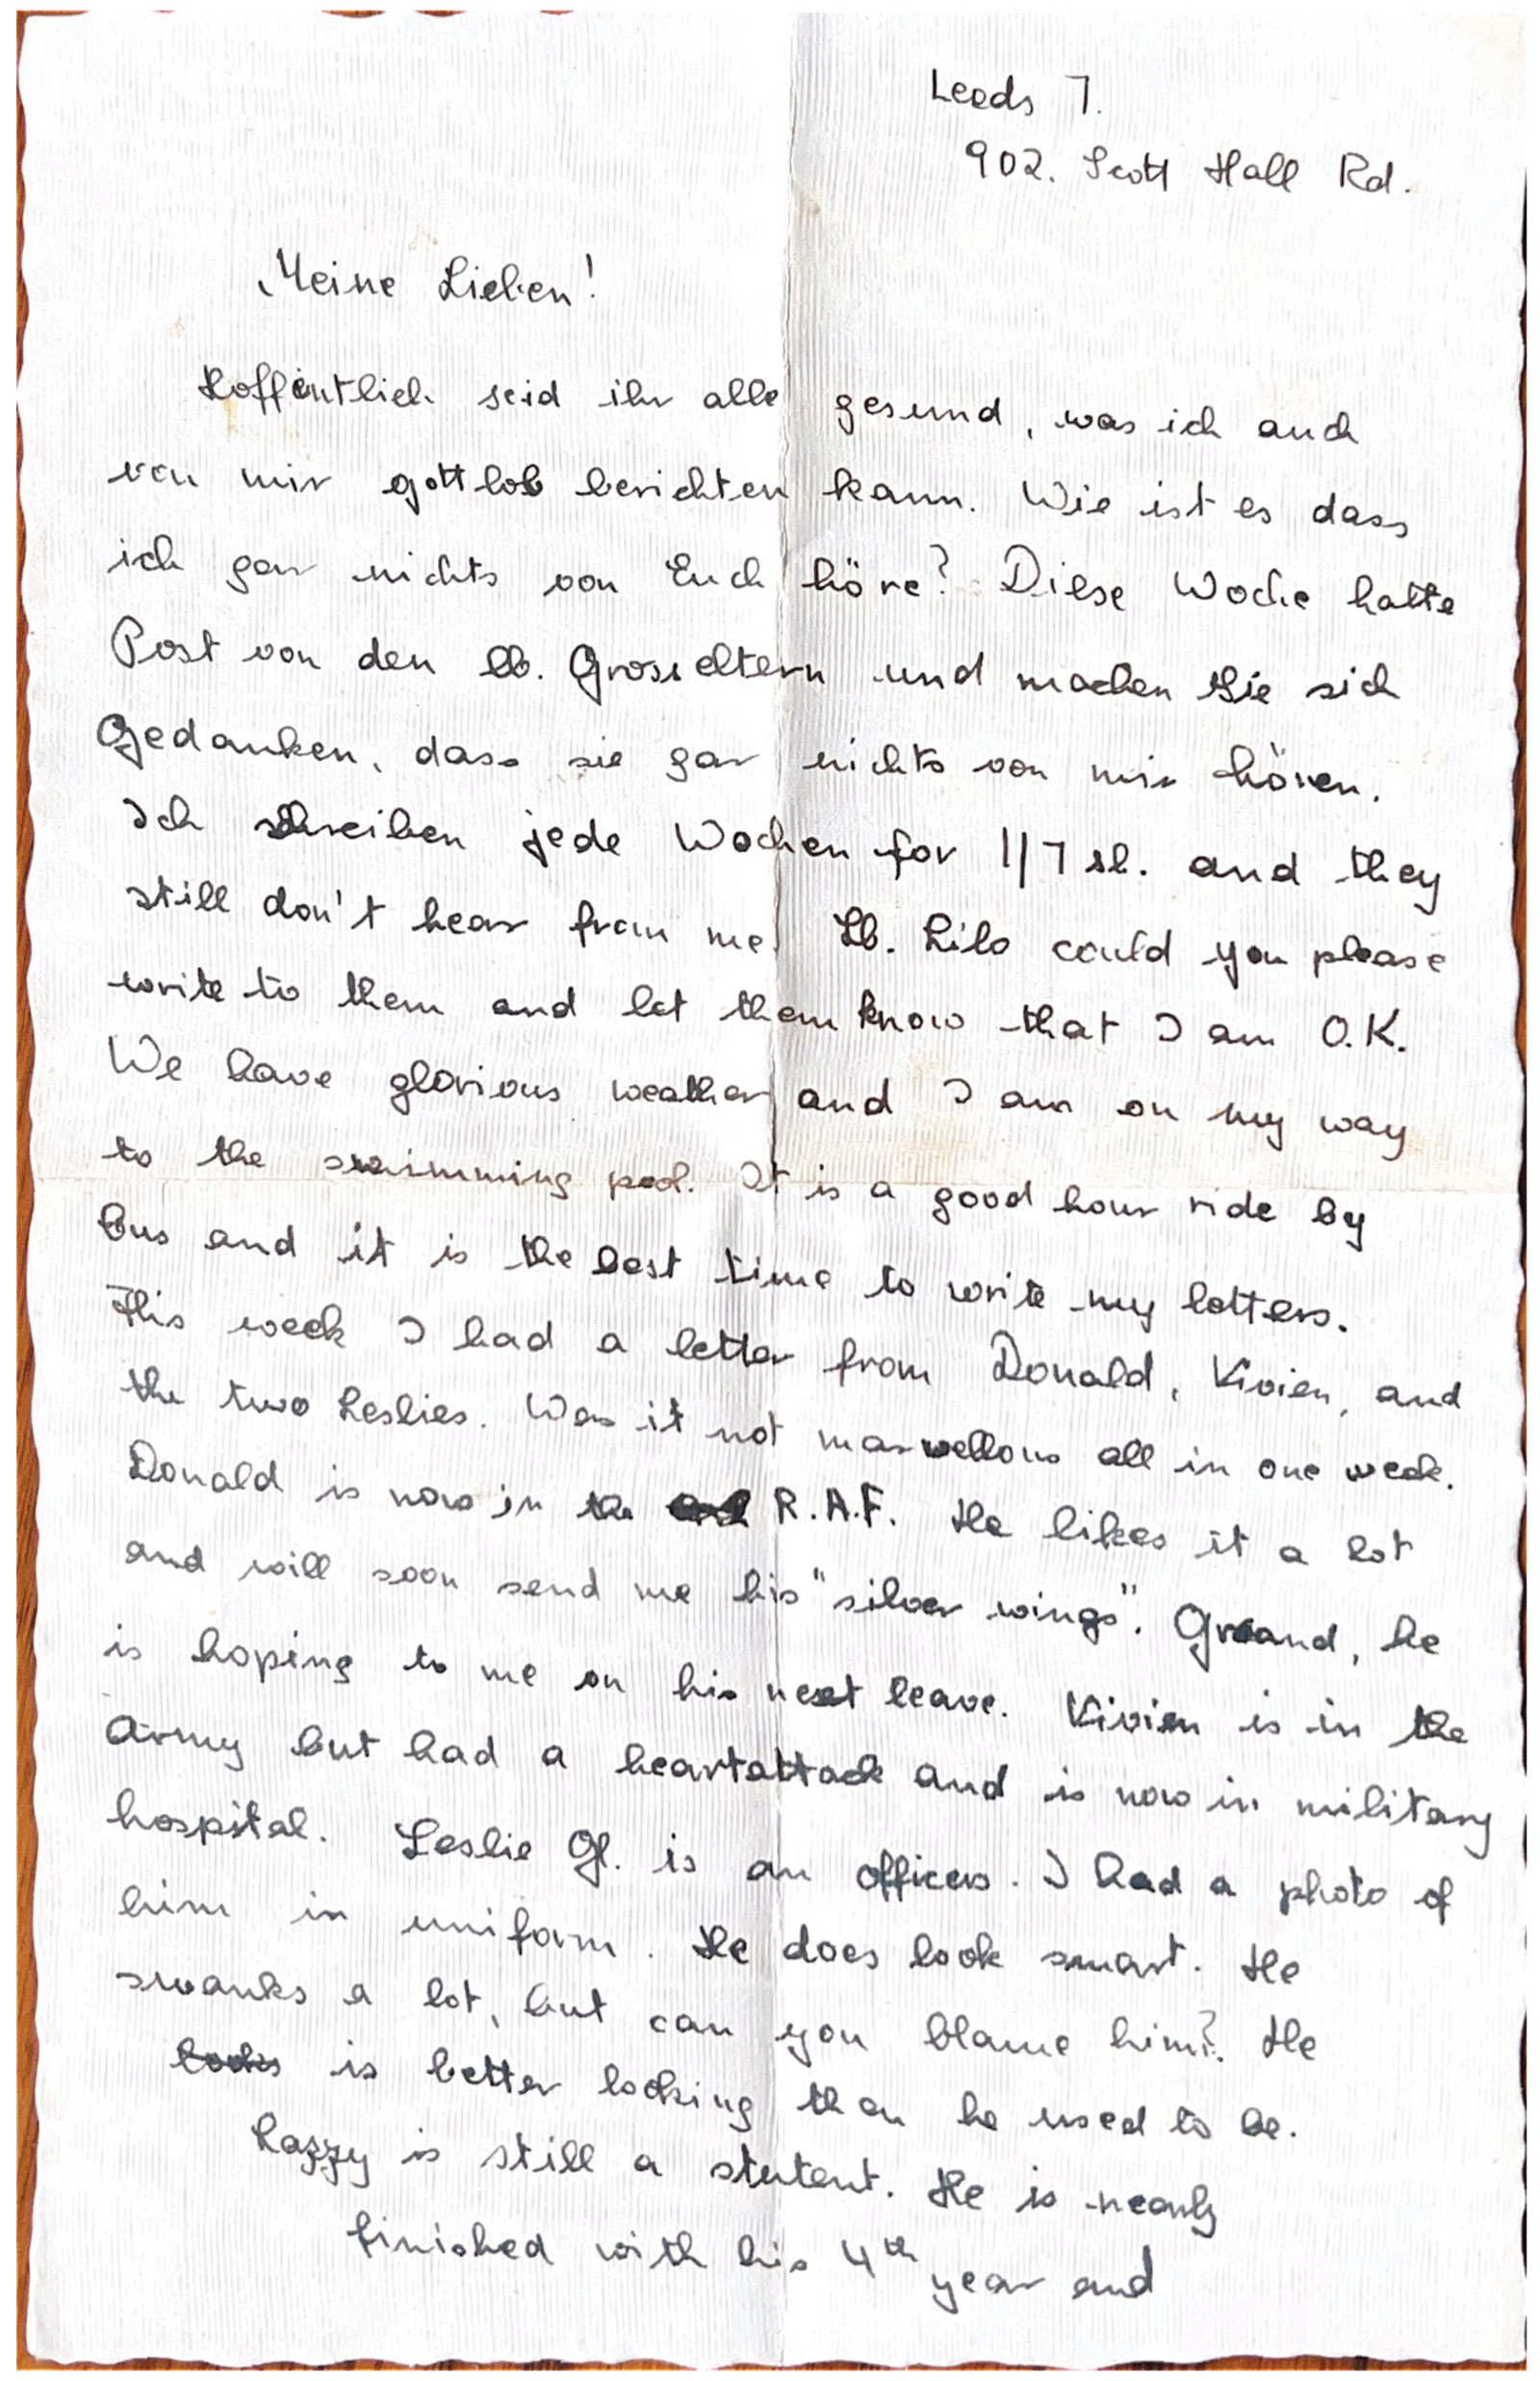 Leeds 7.
902. Scott Hall Rd.
Meine Lieben!
Hoffentlich seid ihr alle gesund, was ich auch
von mir gottlob berichten kann. Wie ist es dass
ich gar nichts von Euch höre? Diese Woche hatte
Post von den lb. Grosseltern und machen Sie sich
Gedanken, dass sie gar nichts von mir hören.
Ich schreiben jede Wochen for 1/7 sh. and they
still don't hear from me. Lb. Lilo could you please
write to them and let them know that I am O.K.
We have glorious weather and I am on my way
to the swimming pool. It is a good hour ride by
bus and it is the best time to write my letters.
This week I had a letter from Donald, Vivien, and
the two Leslies. Was it not marwellous all in one week.
Donald is now in the R.A.F. He likes it a lot
and will soon send me his "silver wings". Grand, he
is hoping to me on his next leave. Vivien is in the
Army but had a heartattack and is now in military
hospital. Leslie Gl. is an officer. I had a photo of
him in uniform. He does look smart. He
swanks a lot, but can you blame him? He
looks is better looking than he used to be.
Lazzy is still a stutent. He is nearly
finished with his 4th year and